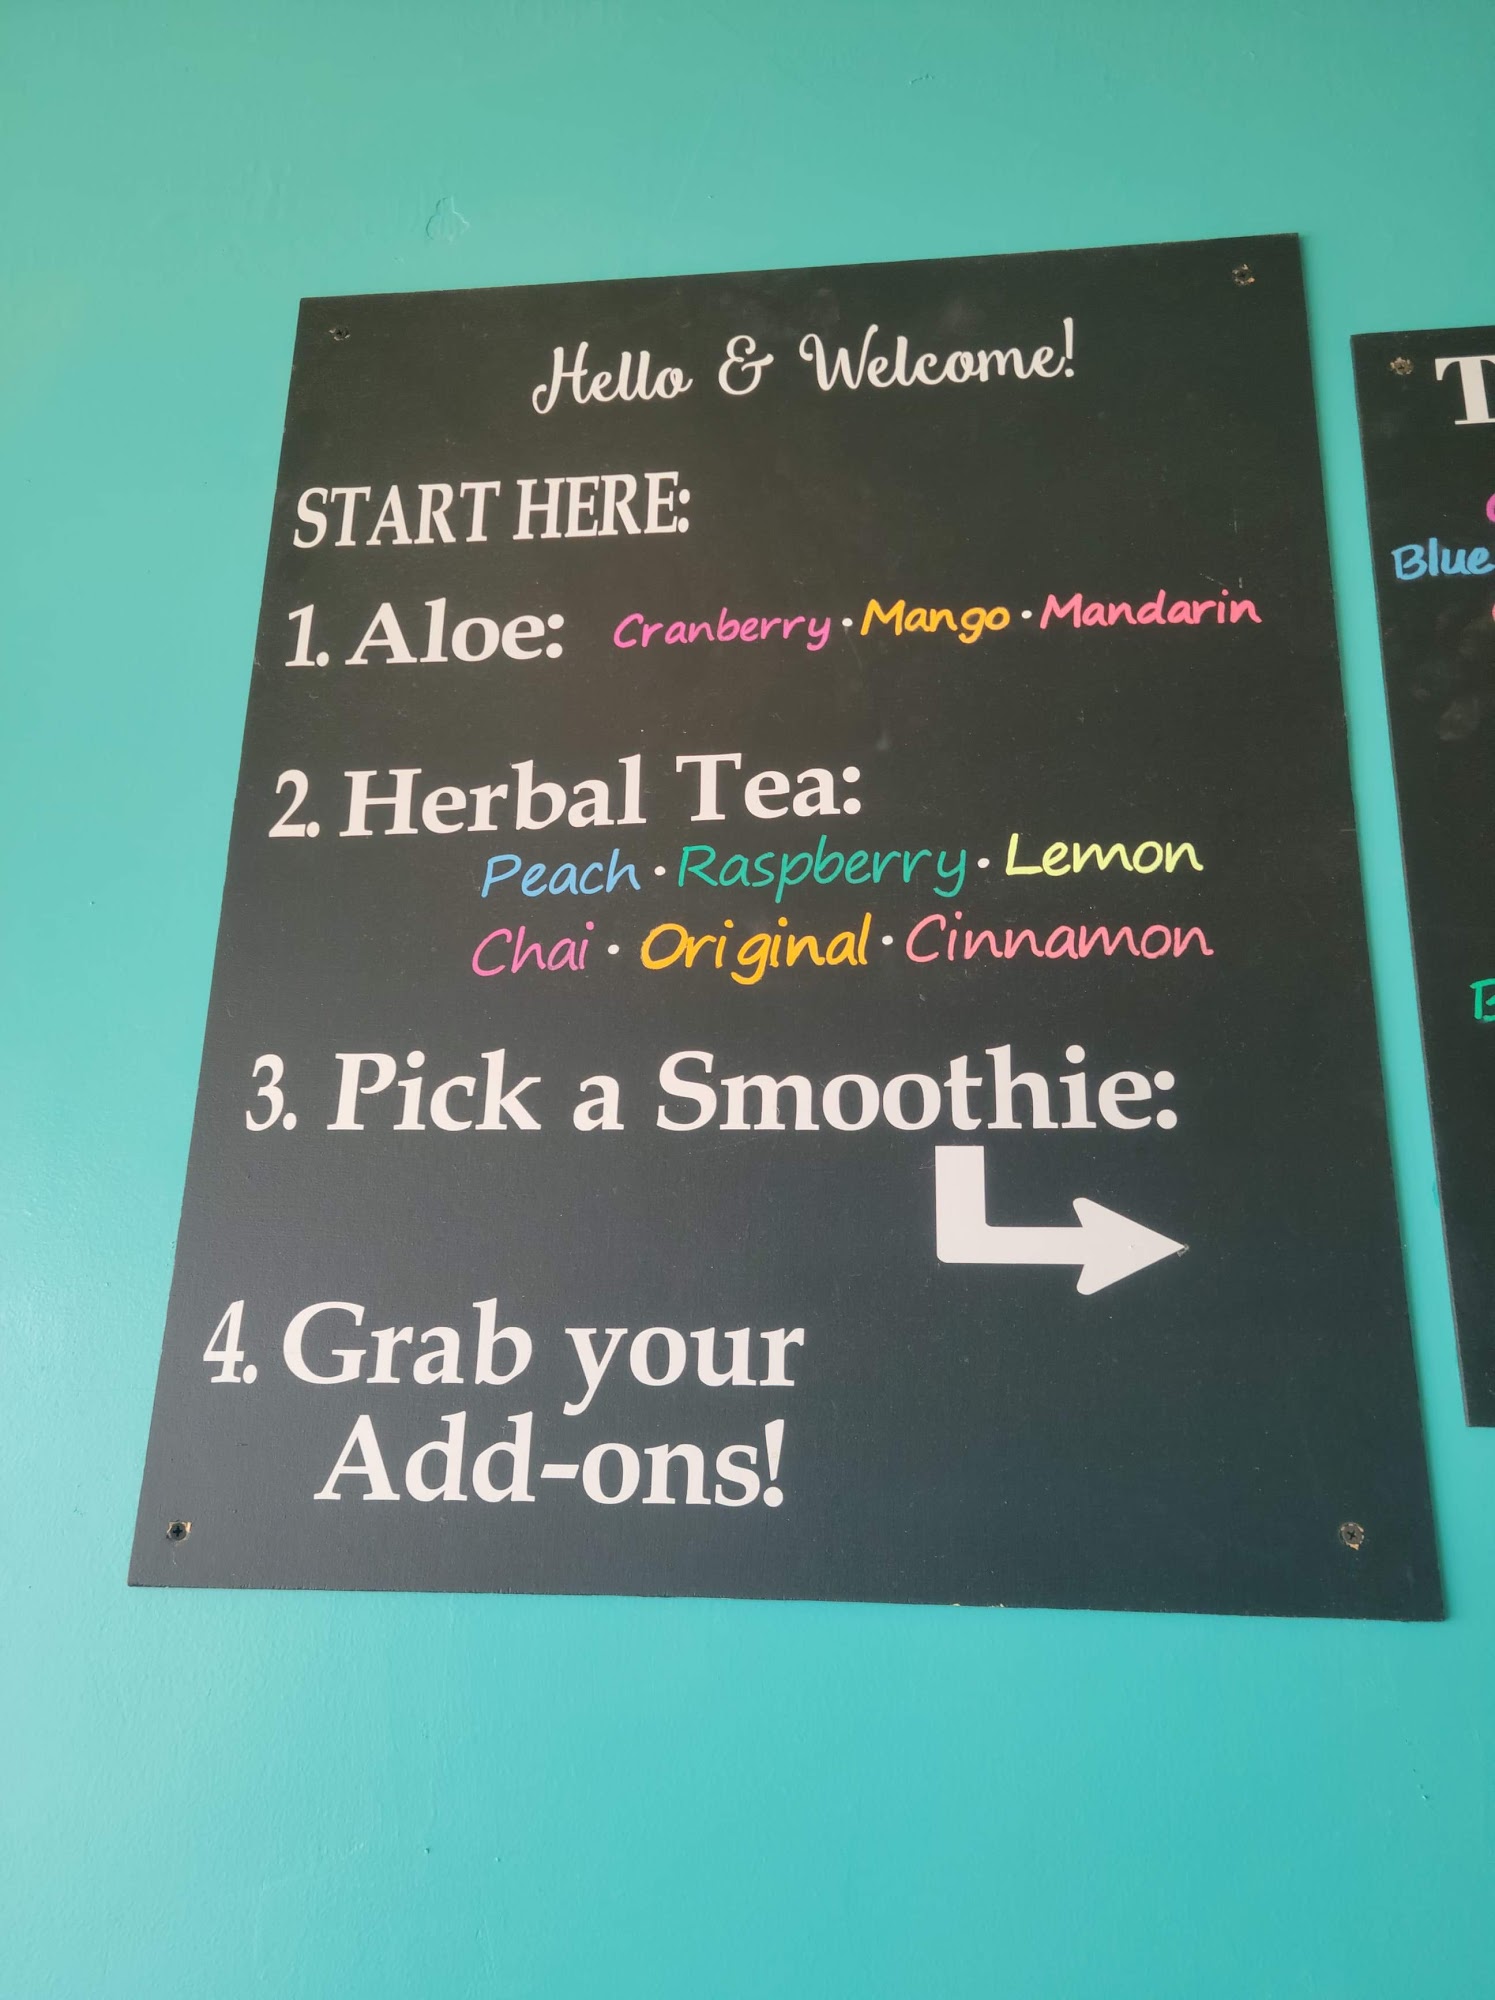 Hello & Welcome!
START HERE:
1. Aloe: Cranberry · Mango · Mandarin
2. Herbal Tea:
Peach · Raspberry · Lemon
Chai · Original · Cinnamon
3. Pick a Smoothie:
4. Grab your
Add-ons!
Blue